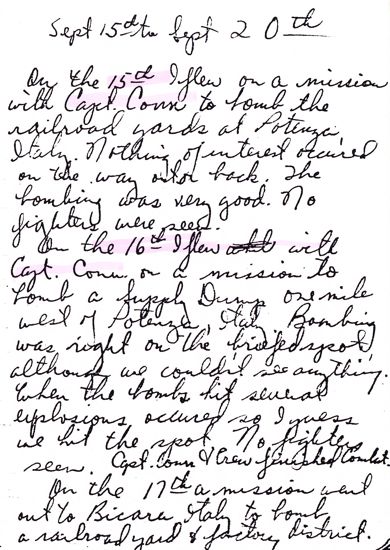 Sept 15th to Sept 20th
On the 15th I flew on a mission
with Capt. Conn to bomb the
railroad yards at Potenza,
Italy. Nothing of interest occured
on the way out or back. The
bombing was very good. No
fighters were seen.
On the 16th I flew with
Capt. Conn on a mission to
bomb a Supply Dump one mile
west of Potenza Italy. Bombing
was right on the briefed spot,
although we couldn't see anything.
When the bombs hit several
explosions occured so I guess
we hit the spot. No fighters
seen. Capt. Conn & Crew finished Combat.
On the 17th a mission went
out to Bicara Italy to bomb
a railroad yard & factory district.